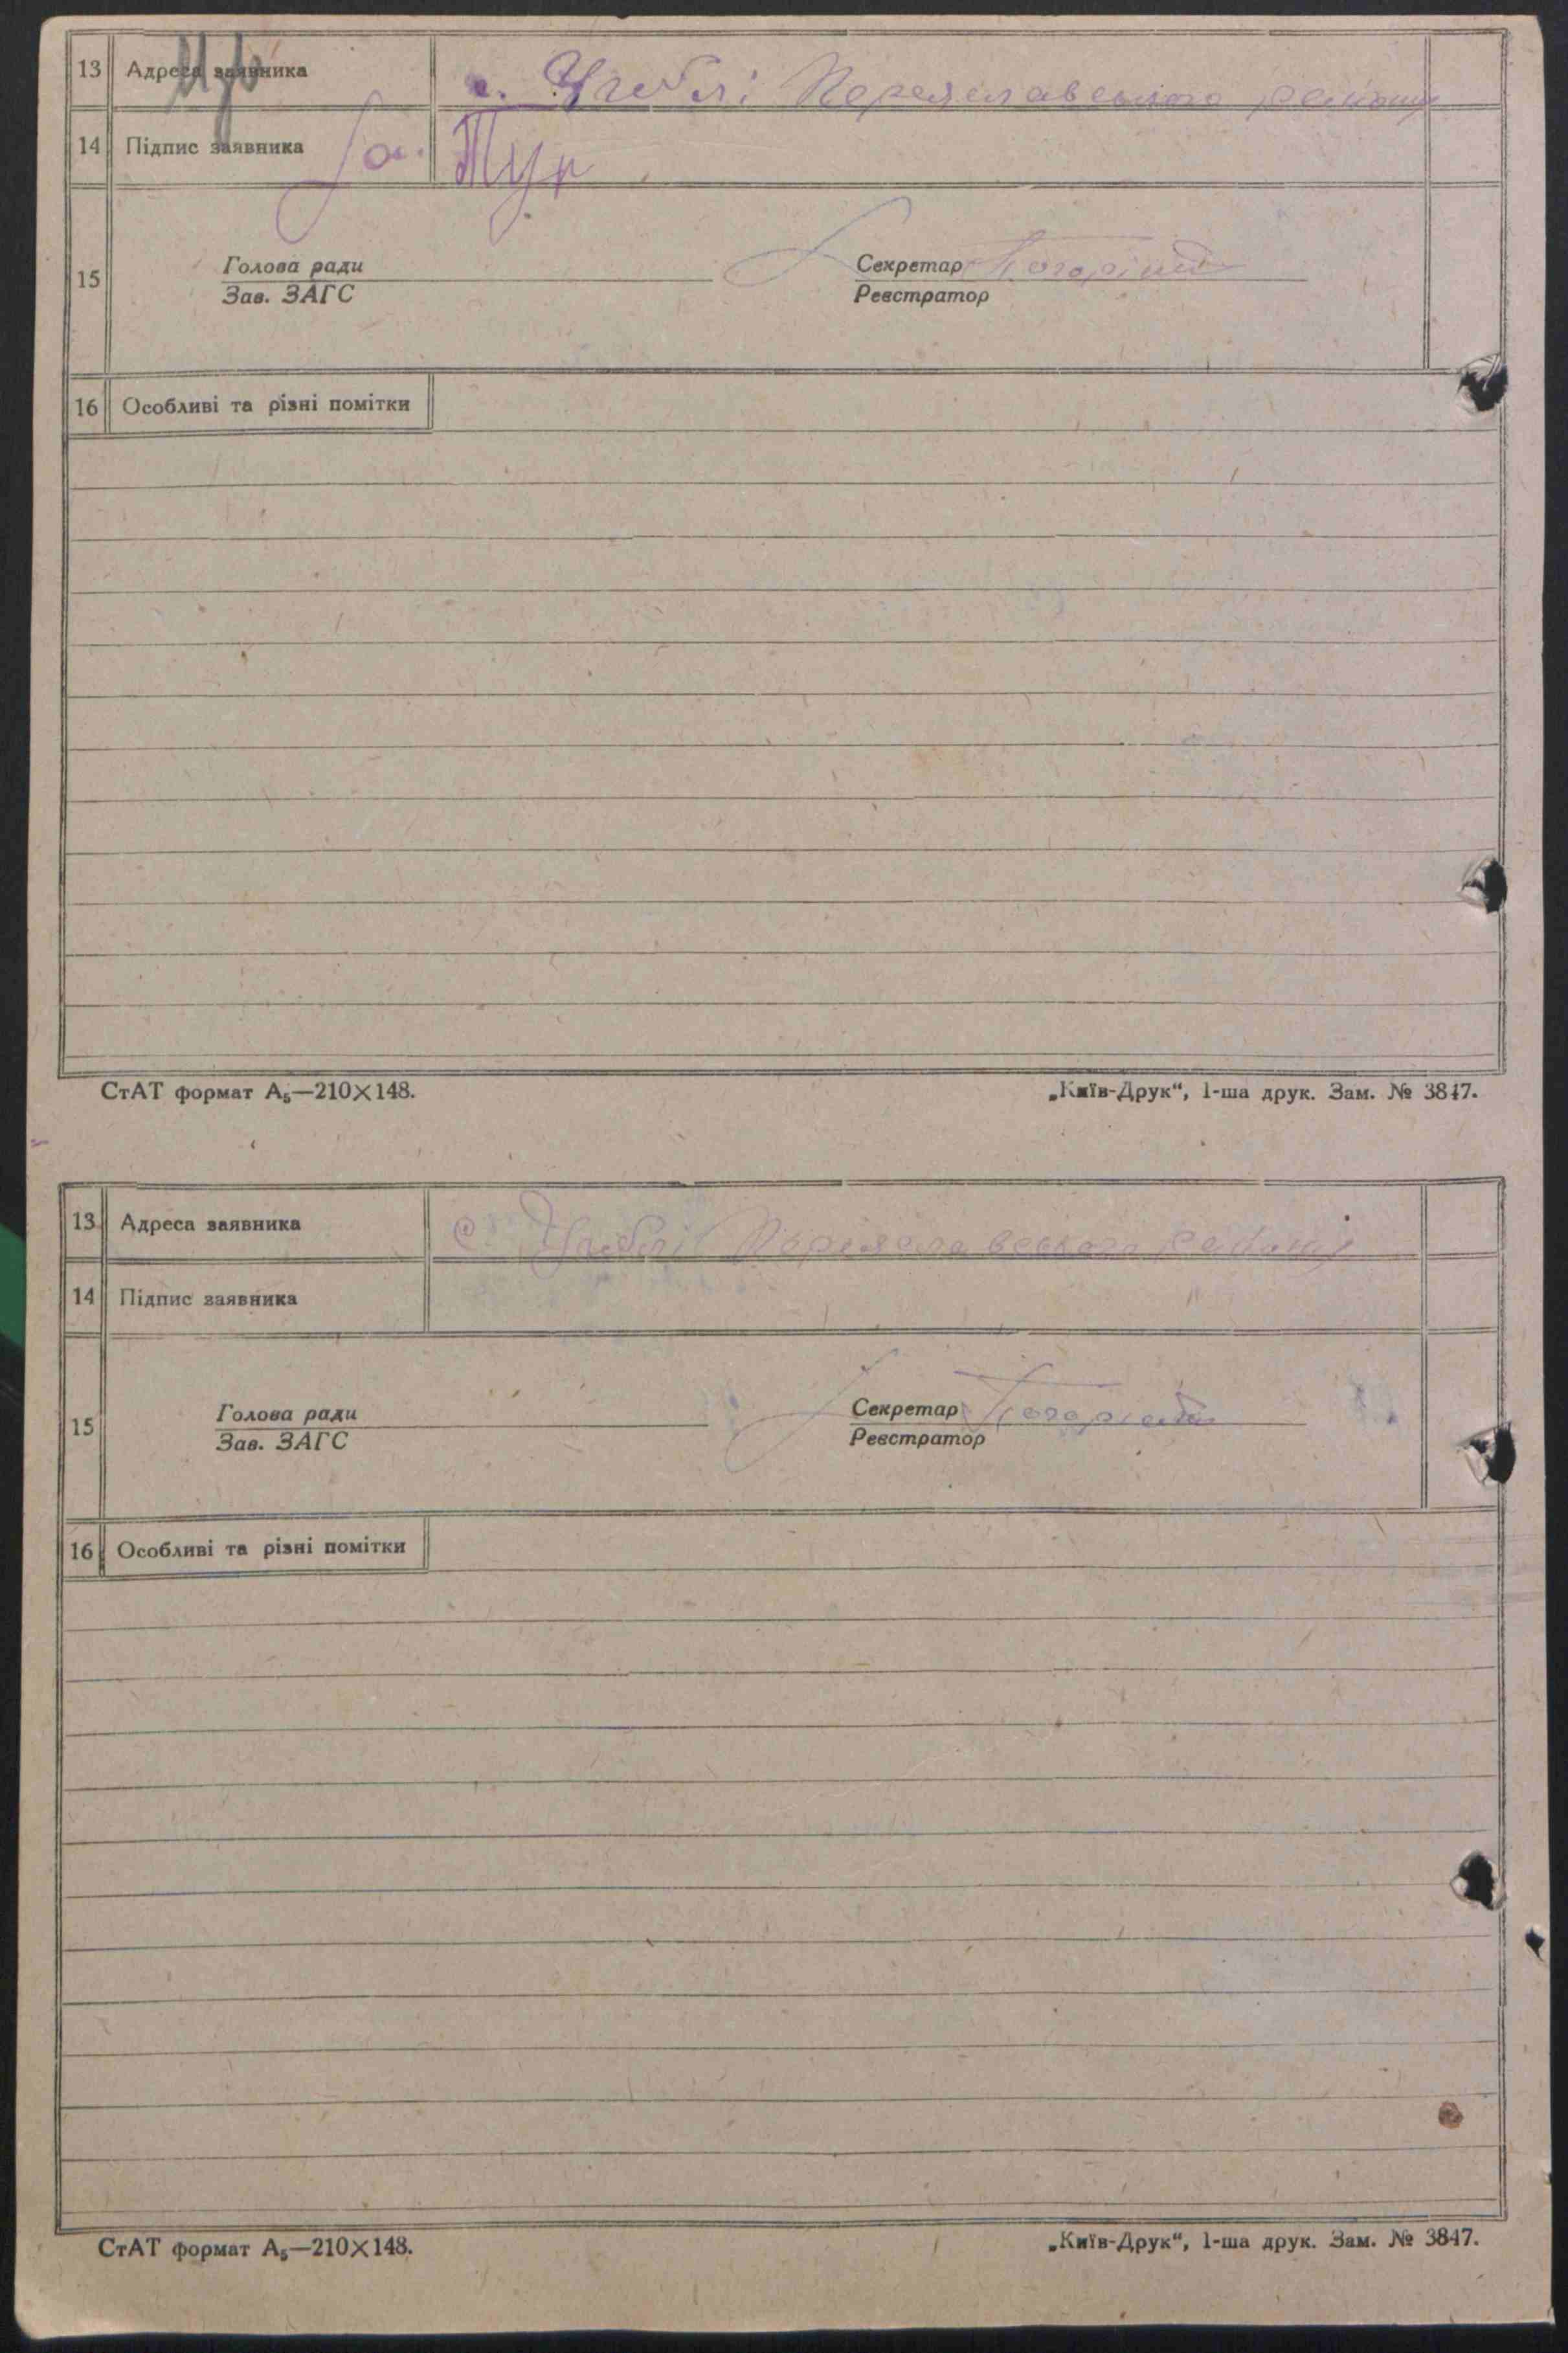 13 Адреса заявника с. Чеблі Переяславського району
14 Підпис заявника Тур
15 Голова ради Секретар
Зав. ЗАГС Реєстратор
16 Особливі та різні помітки
СтАТ формат А₅—210×148. „Київ-Друк“, 1-ша друк. Зам. № 3847.
13 Адреса заявника с. Переяславського району
14 Підпис заявника
15 Голова ради Секретар
Зав. ЗАГС Реєстратор
16 Особливі та різні помітки
СтАТ формат А₅—210×148. „Київ-Друк“, 1-ша друк. Зам. № 3847.